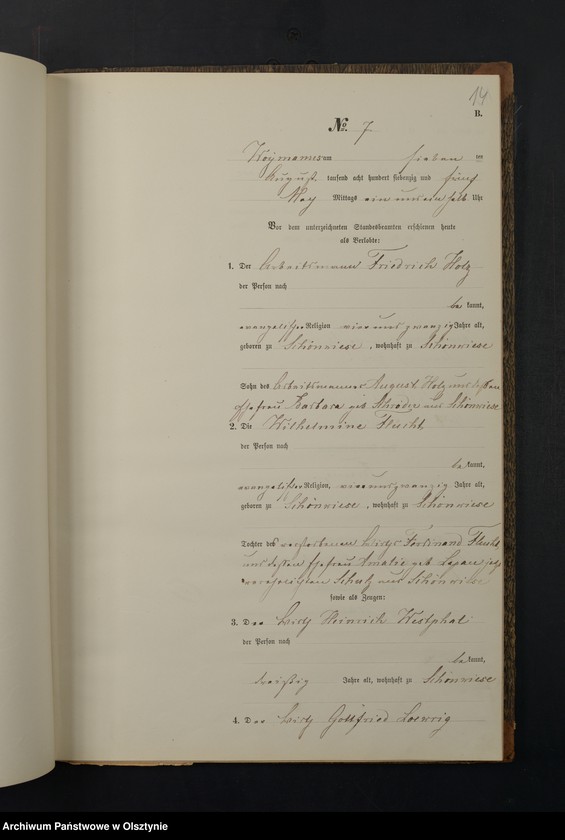 14
B.
No. 7
am sieben ten
August tausend acht hundert siebenzig und fünf
Mittags ein und ein halb Uhr
Vor dem unterzeichneten Standesbeamten erschienen heute
als Verlobte:
1. Der Arbeitsmann Friedrich Holz
der Person nach
be kannt,
evangelischer Religion und zwanzig Jahre alt,
geboren zu Schönwiese, wohnhaft zu Schönwiese
Sohn des Arbeitsmannes August Holz und dessen
Ehefrau Barbara geb. aus Schönwiese
2. Die Wilhelmine Flucht
der Person nach
be kannt,
evangelischer Religion, und zwanzig Jahre alt,
geboren zu Schönwiese, wohnhaft zu Schönwiese
Tochter des verstorbenen Wirths Ferdinand Flucht
und dessen Ehefrau Amalie geb.
Schulz aus Schönwiese
sowie als Zeugen:
3. Der Wirth Heinrich Westphal
der Person nach
be kannt,
dreißig Jahre alt, wohnhaft zu Schönwiese
4. Der Wirth Gottfried
Archiwum Państwowe w Olsztynie